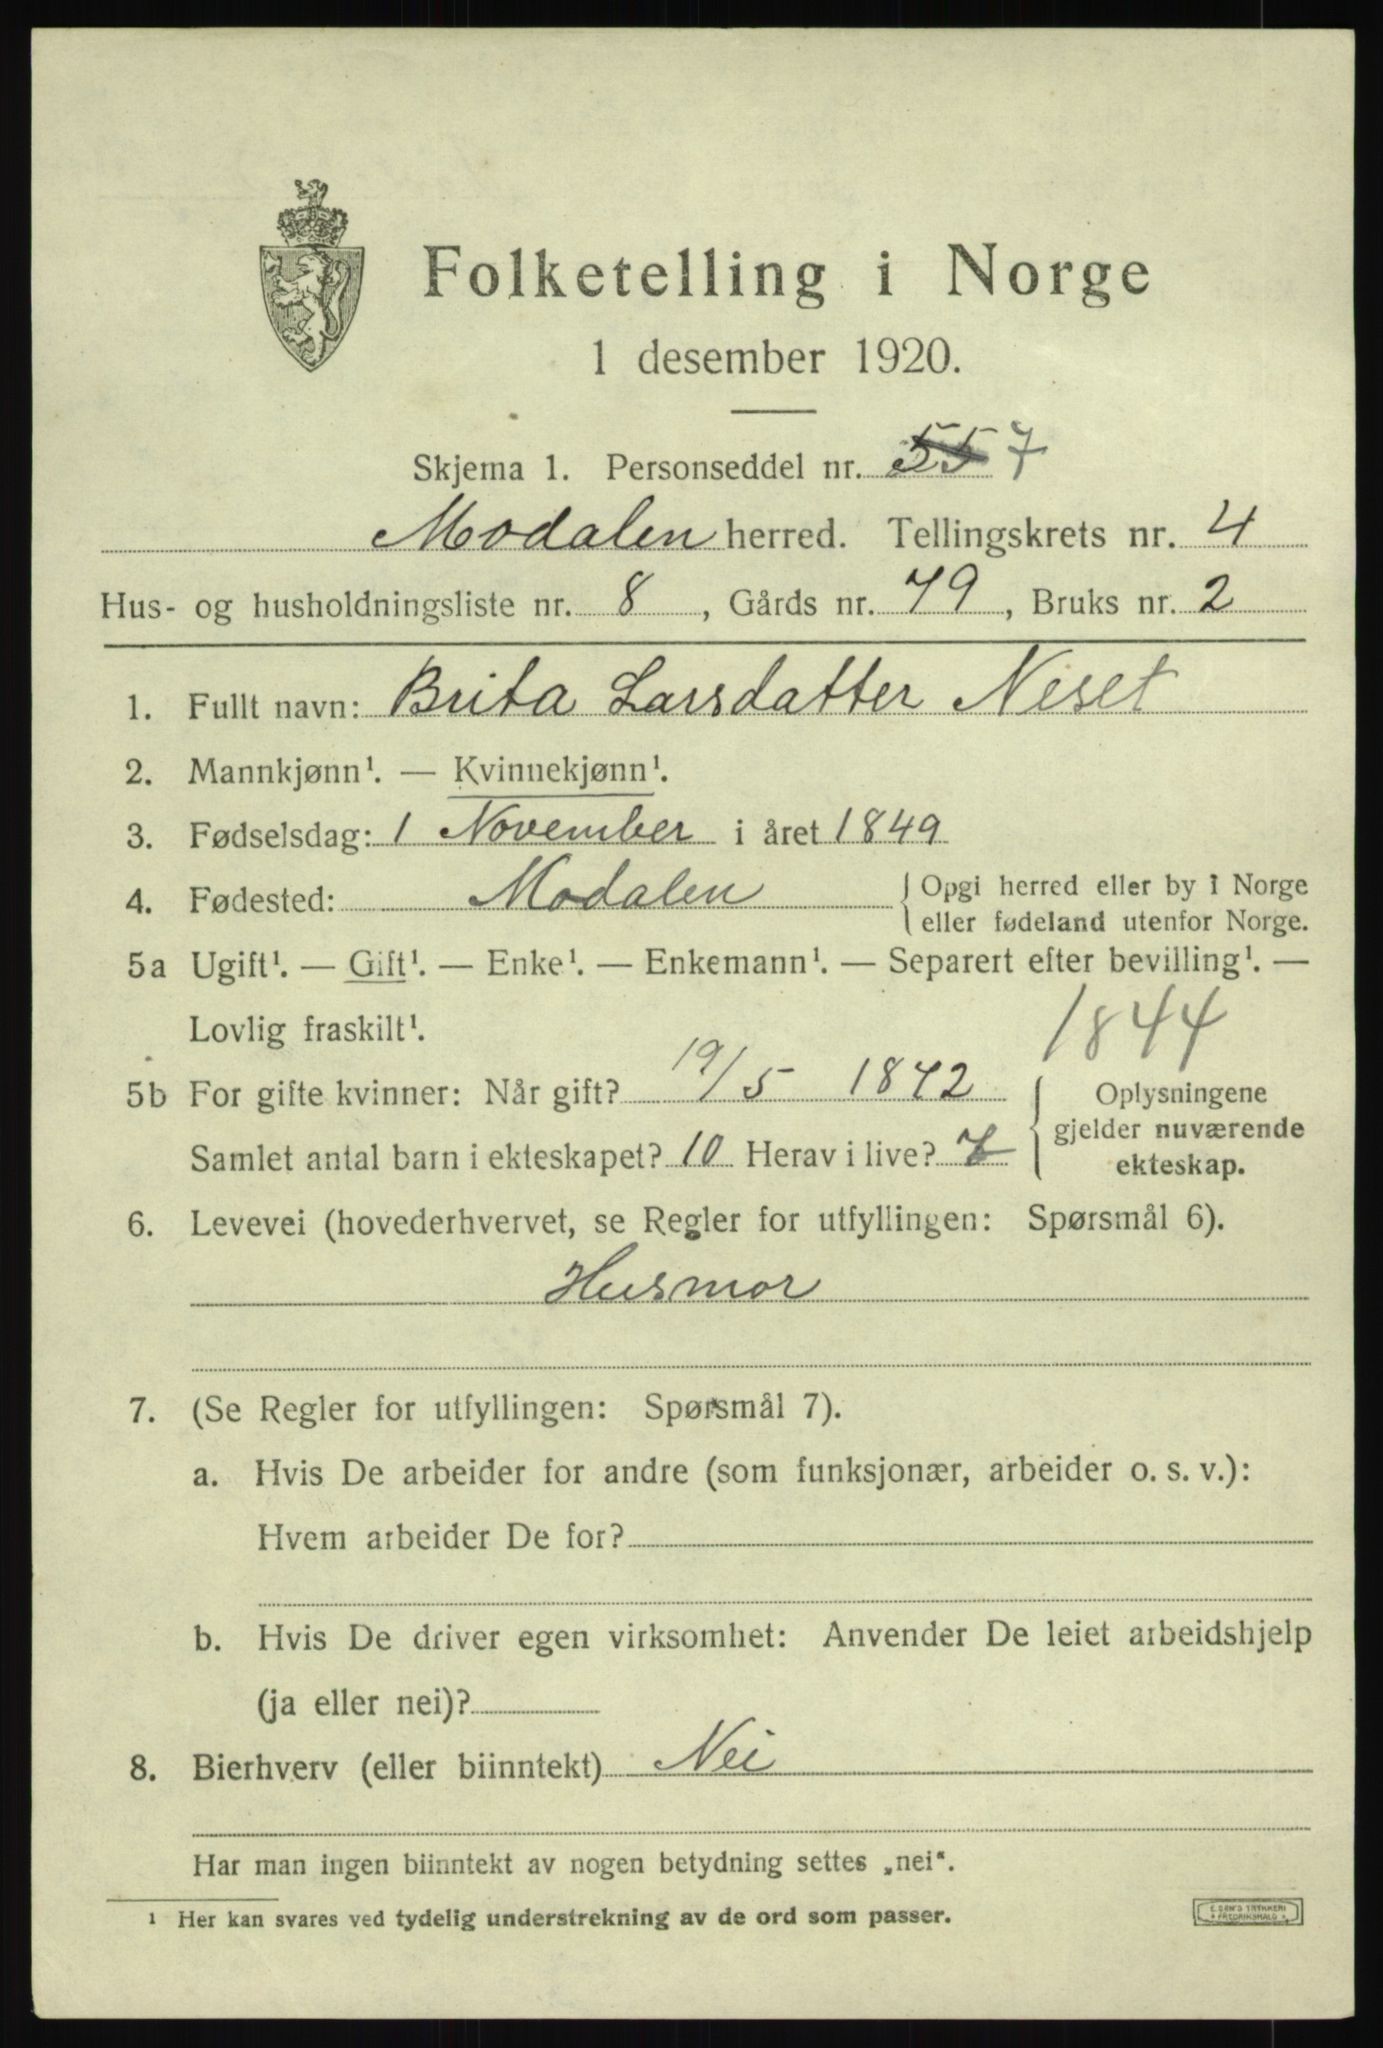 Folketelling i Norge
1 desember 1920.
Skjema 1. Personseddel nr. 55 7
Modalen herred. Tellingskrets nr. 4
Hus- og husholdningsliste nr. 8, Gårds nr. 79, Bruks nr. 2
1. Fullt navn: Brita Larsdatter Neset
2. Mannkjønn¹. — Kvinnekjønn¹.
3. Fødselsdag: 1 November i året 1849
4. Fødested: Modalen
Opgi herred eller by i Norge
eller fødeland utenfor Norge.
5a Ugift¹. — Gift¹. — Enke¹. — Enkemann¹. — Separert efter bevilling¹. —
Lovlig fraskilt¹.
1844
5b For gifte kvinner: Når gift? 19/5 1872
Samlet antal barn i ekteskapet? 10 Herav i live?
Oplysningene
gjelder nuværende
ekteskap.
6. Levevei (hovederhvervet, se Regler for utfyllingen: Spørsmål 6).
Husmor
7. (Se Regler for utfyllingen: Spørsmål 7).
a. Hvis De arbeider for andre (som funksjonær, arbeider o. s. v.):
Hvem arbeider De for?
b. Hvis De driver egen virksomhet: Anvender De leiet arbeidshjelp
(ja eller nei)?
8. Bierhverv (eller biinntekt) Nei
Har man ingen biinntekt av nogen betydning settes „nei“.
¹ Her kan svares ved tydelig understrekning av de ord som passer.
E. SEM'S TRYKKERI
FREDRIKSHALD